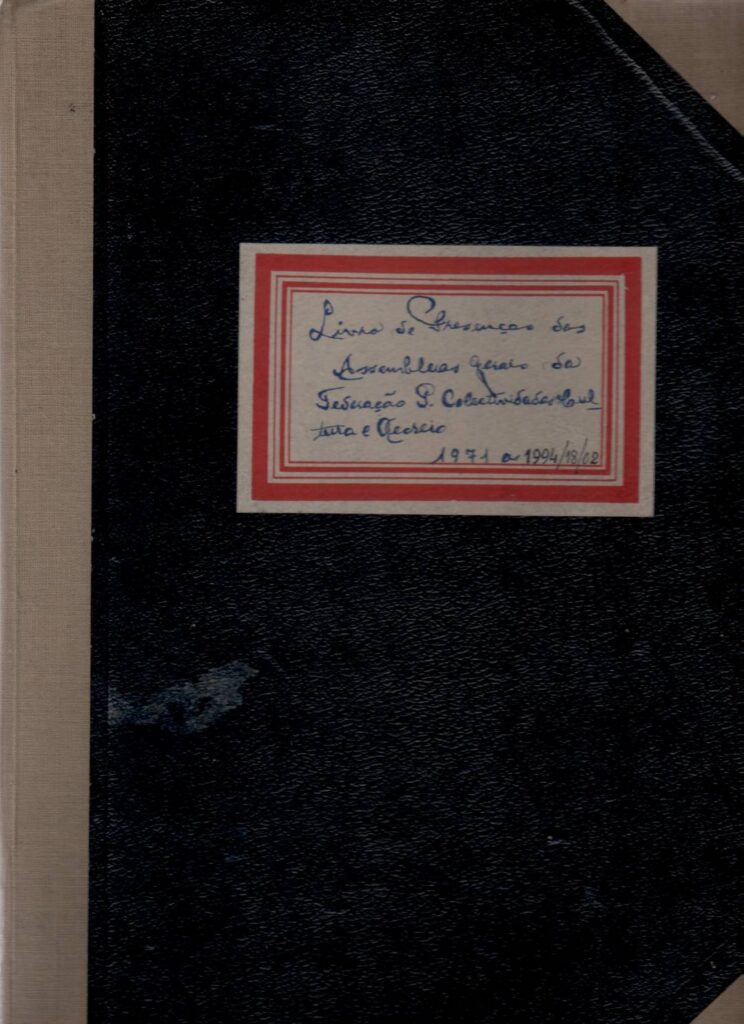 Livro de Presenças das
Assembleias gerais da
Federação P. Colectividades Cul_
tura e Recreio
1971 a 1994/18/02